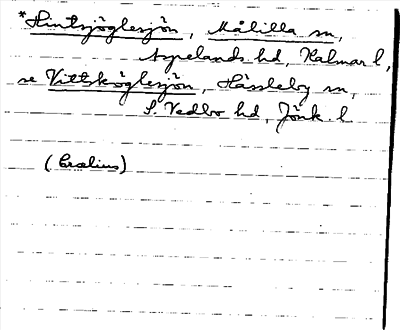 *Hintsjöglesjön, Målilla sn,
Aspelands hd, Kalmar l,
se Vittsköglesjön, Hässleby sn,
S. Vedbo hd, Jönk. l
(Cralius)